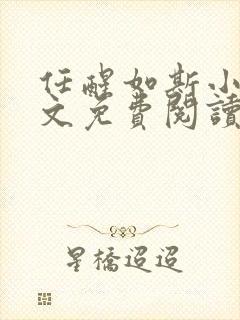 任醒如斯小
文免費閱讀
星橋迢迢